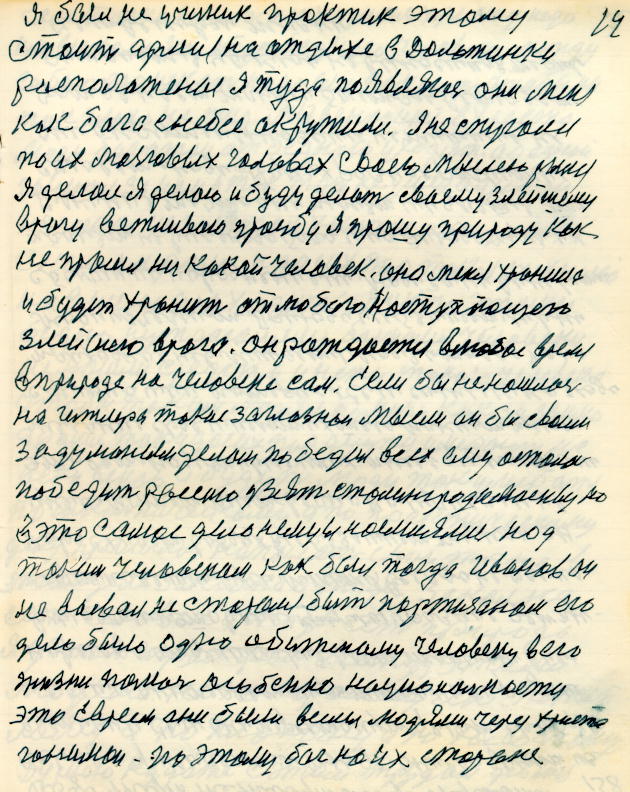 Я был не ученик практик этому 14
стоит армия на отдыхе в Дольтинке
расположеные я туда появляюся они меня
как бога с небес окружили. Я не спугался
по их мозговых головах своею мыслею
Я делал я делаю и буду делать своему злейшему
врагу ветливаю прозбу я прошу природу как
не просил ни какой человек. она меня хранила
и будет хранит от любого наступающего
злейшего врага. он рождается в любое время
в природе на человеке сам. Если бы не нашлася
на гитлера такое заглавная мысели он бы своим
задуманым делом победил всех ему осталас
победит россию узять сталинград и маскву но
в это самое дело немцы насмиялис над
таким человеком как был тогда Иванов он
не воевал не старался быть партизаном его
дело было одно обиженому человеку в его
жизни помоч особенно национальности
это евреем они были всеми людями через христа
гонимои - по этому бог на их стороне